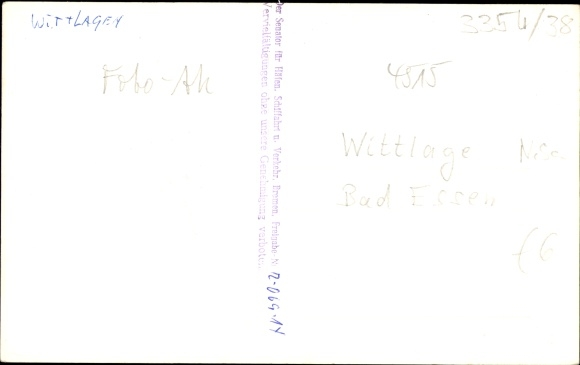 WITTLAGEN
3354/38
Foto-AK
4515
Wittlage Nds.
Bad Essen
Der Senator für Häfen, Schiffahrt u. Verkehr, Bremen, Freigabe N
Vervielfältigungen ohne unsere Genehmigung verboten.